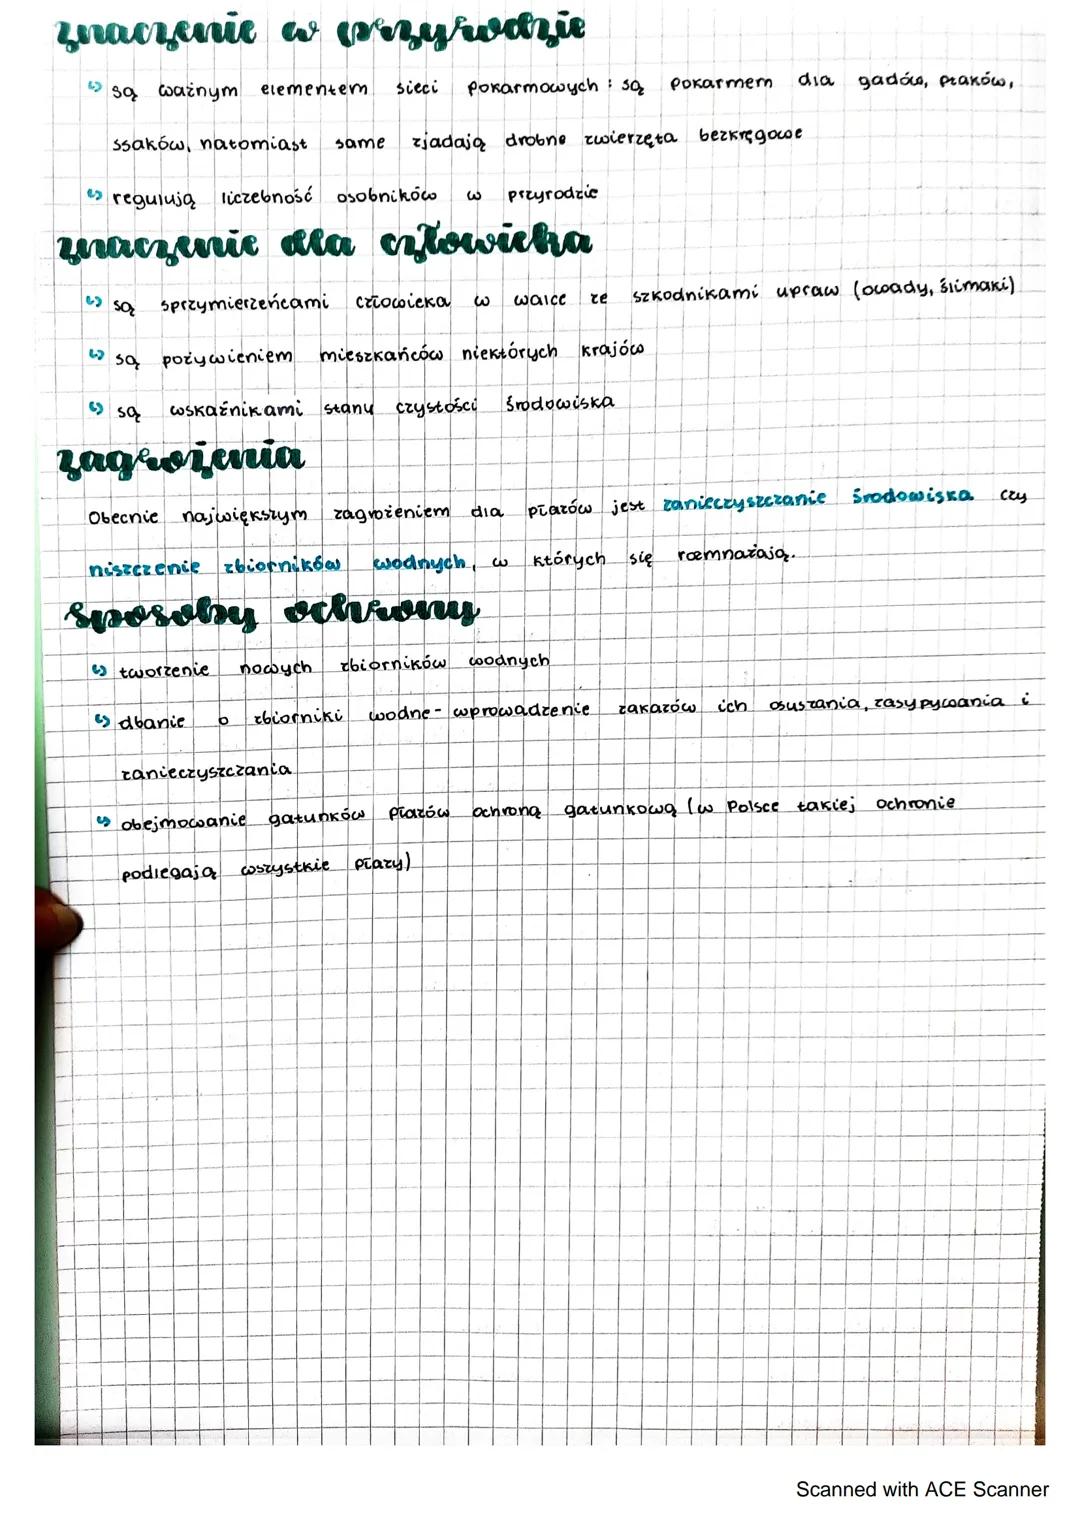 znaczenie w przyrodzie
↪ są ważnym elementem sieci pokarmowych: są pokarmem dla gadów, ptaków,
ssaków, natomiast same zjadają drobne zwierzęta bezkręgowe
↪ regulują liczebność osobników w przyrodzie
znaczenie dla człowieka
↪ są sprzymierzeńcami człowieka w walce ze szkodnikami upraw (owady, ślimaki)
↪ są pożywieniem mieszkańców niektórych krajów
↪ są wskaźnikami stanu czystości środowiska
zagrożenia
Obecnie największym zagrożeniem dla płazów jest zanieczyszczanie środowiska czy
niszczenie zbiorników wodnych, w których się rozmnażają.
sposoby ochrony
↪ tworzenie nowych zbiorników wodnych
↪ dbanie o zbiorniki wodne - wprowadzenie zakazów ich osuszania, zasypywania i
zanieczyszczania
↪ obejmowanie gatunków płazów ochroną gatunkową (w Polsce takiej ochronie
podlegają wszystkie płazy)
Scanned with ACE Scanner